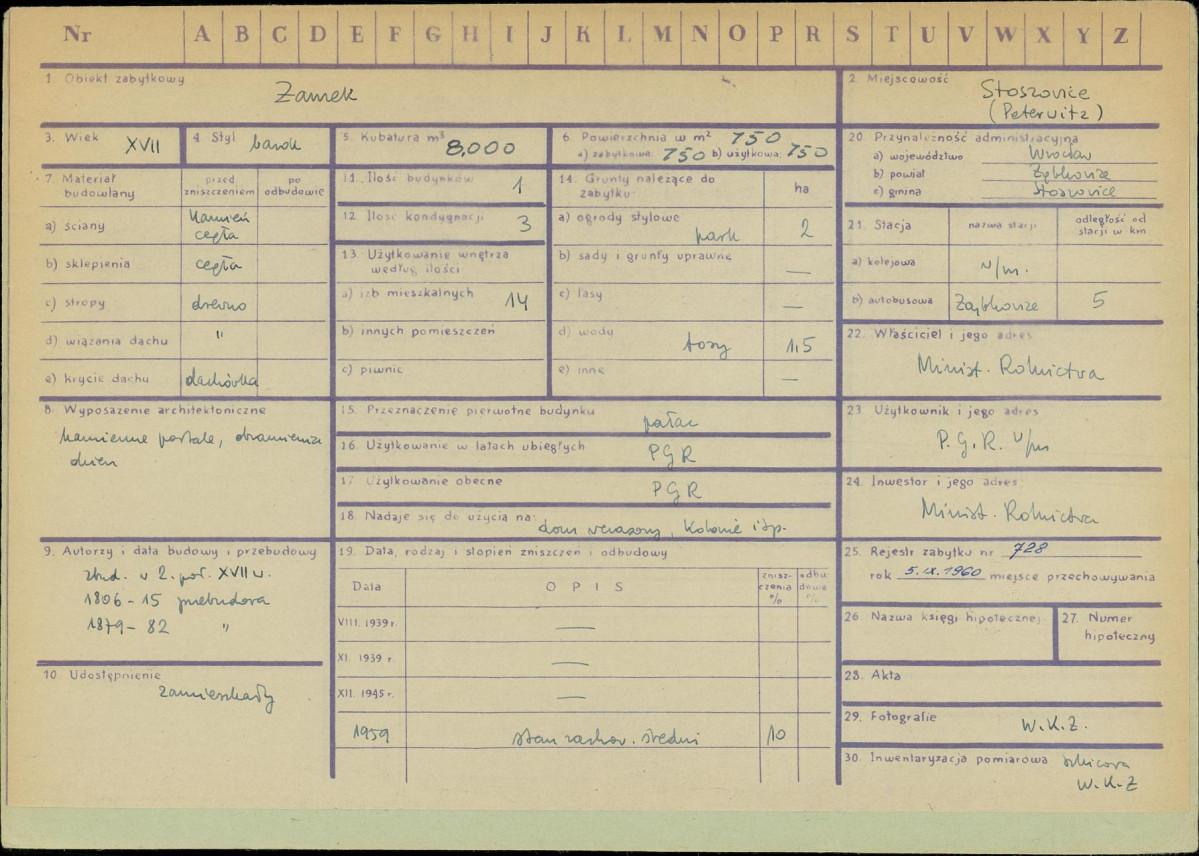 Nr A B C D E F G H I J K L M N O P R S T U V W X Y Z
1. Obiekt zabytkowy
Zamek
2. Miejscowość
Stoszowice
(Peterwitz)
3. Wiek XVII
4. Styl barok
5. Kubatura m³ 8,000
6. Powierzchnia w m² 750
a) zabytkowa: 750 b) użytkowa: 750
7. Materiał budowlany
przed zniszczeniem
po odbudowie
a) ściany kamień cegła
b) sklepienia cegła
c) stropy drewno
d) wiązania dachu "
e) krycie dachu dachówka
8. Wyposażenie architektoniczne
kamienne portale, obramienia
okien
9. Autorzy i data budowy i przebudowy
zbud. w 2. poł. XVII w.
1806-15 przebudowa
1879-82 "
10. Udostępnienie
zamieszkały
11. Ilość budynków 1
12. Ilość kondygnacji 3
13. Użytkowanie wnętrza
według ilości
a) izb mieszkalnych 14
b) innych pomieszczeń
c) piwnic
14. Grunty należące do
zabytku:
ha
a) ogrody stylowe
park 2
b) sady i grunty uprawne —
c) lasy —
d) wody
1,5
e) inne —
15. Przeznaczenie pierwotne budynku
pałac
16. Użytkowanie w latach ubiegłych
PGR
17. Użytkowanie obecne
PGR
18. Nadaje się do użycia na:
dom wczasowy, kolonie itp.
19. Data, rodzaj i stopień zniszczeń i odbudowy
Data
OPIS
zniszczenia %
odbudowie %
VIII. 1939 r. —
XI. 1939 r. —
XII. 1945 r. —
1959 stan zachow. średni 10
20. Przynależność administracyjna
a) województwo Wrocław
b) powiat Ząbkowice
c) gmina Stoszowice
21. Stacja
nazwa stacji
odległość od
stacji w km
a) kolejowa w/m.
b) autobusowa Ząbkowice 5
22. Właściciel i jego adres
Minist. Rolnictwa
23. Użytkownik i jego adres
P.G.R. w/m
24. Inwestor i jego adres
Minist. Rolnictwa
25. Rejestr zabytku nr 728
rok 5.IX.1960 miejsce przechowywania
26. Nazwa księgi hipotecznej
27. Numer
hipoteczny
28. Akta
29. Fotografie
W.K.Z.
30. Inwentaryzacja pomiarowa
W.K.Z